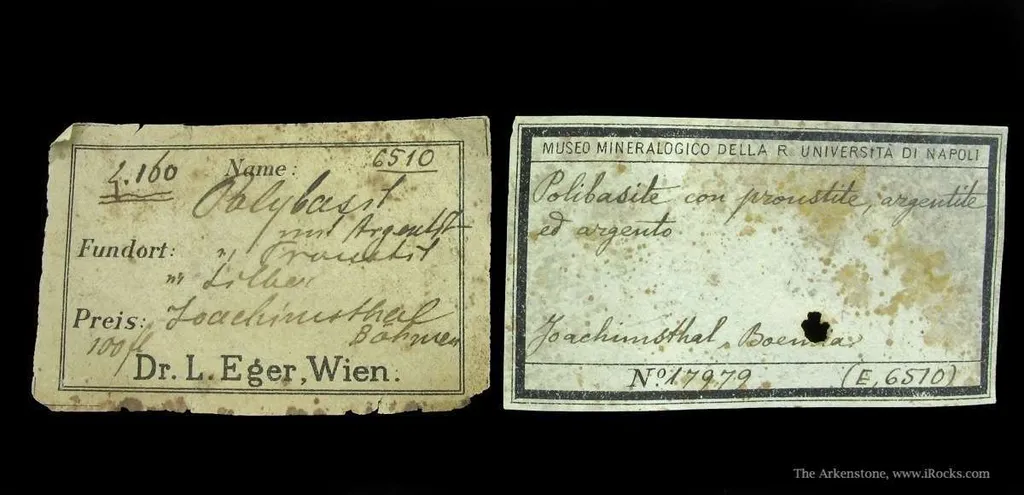 2.160
6510
Name:
Polybasit
mit Argentit
Fundort: " Proustit
" Silber
Preis: Joachimsthal
Böhmen
100 fl
Dr. L. Eger, Wien.
MUSEO MINERALOGICO DELLA R. UNIVERSITÀ DI NAPOLI
Polibasite con proustite, argentite
ed argento
Joachimsthal, Boemia
No 17979 (E, 6510)
The Arkenstone, www.iRocks.com